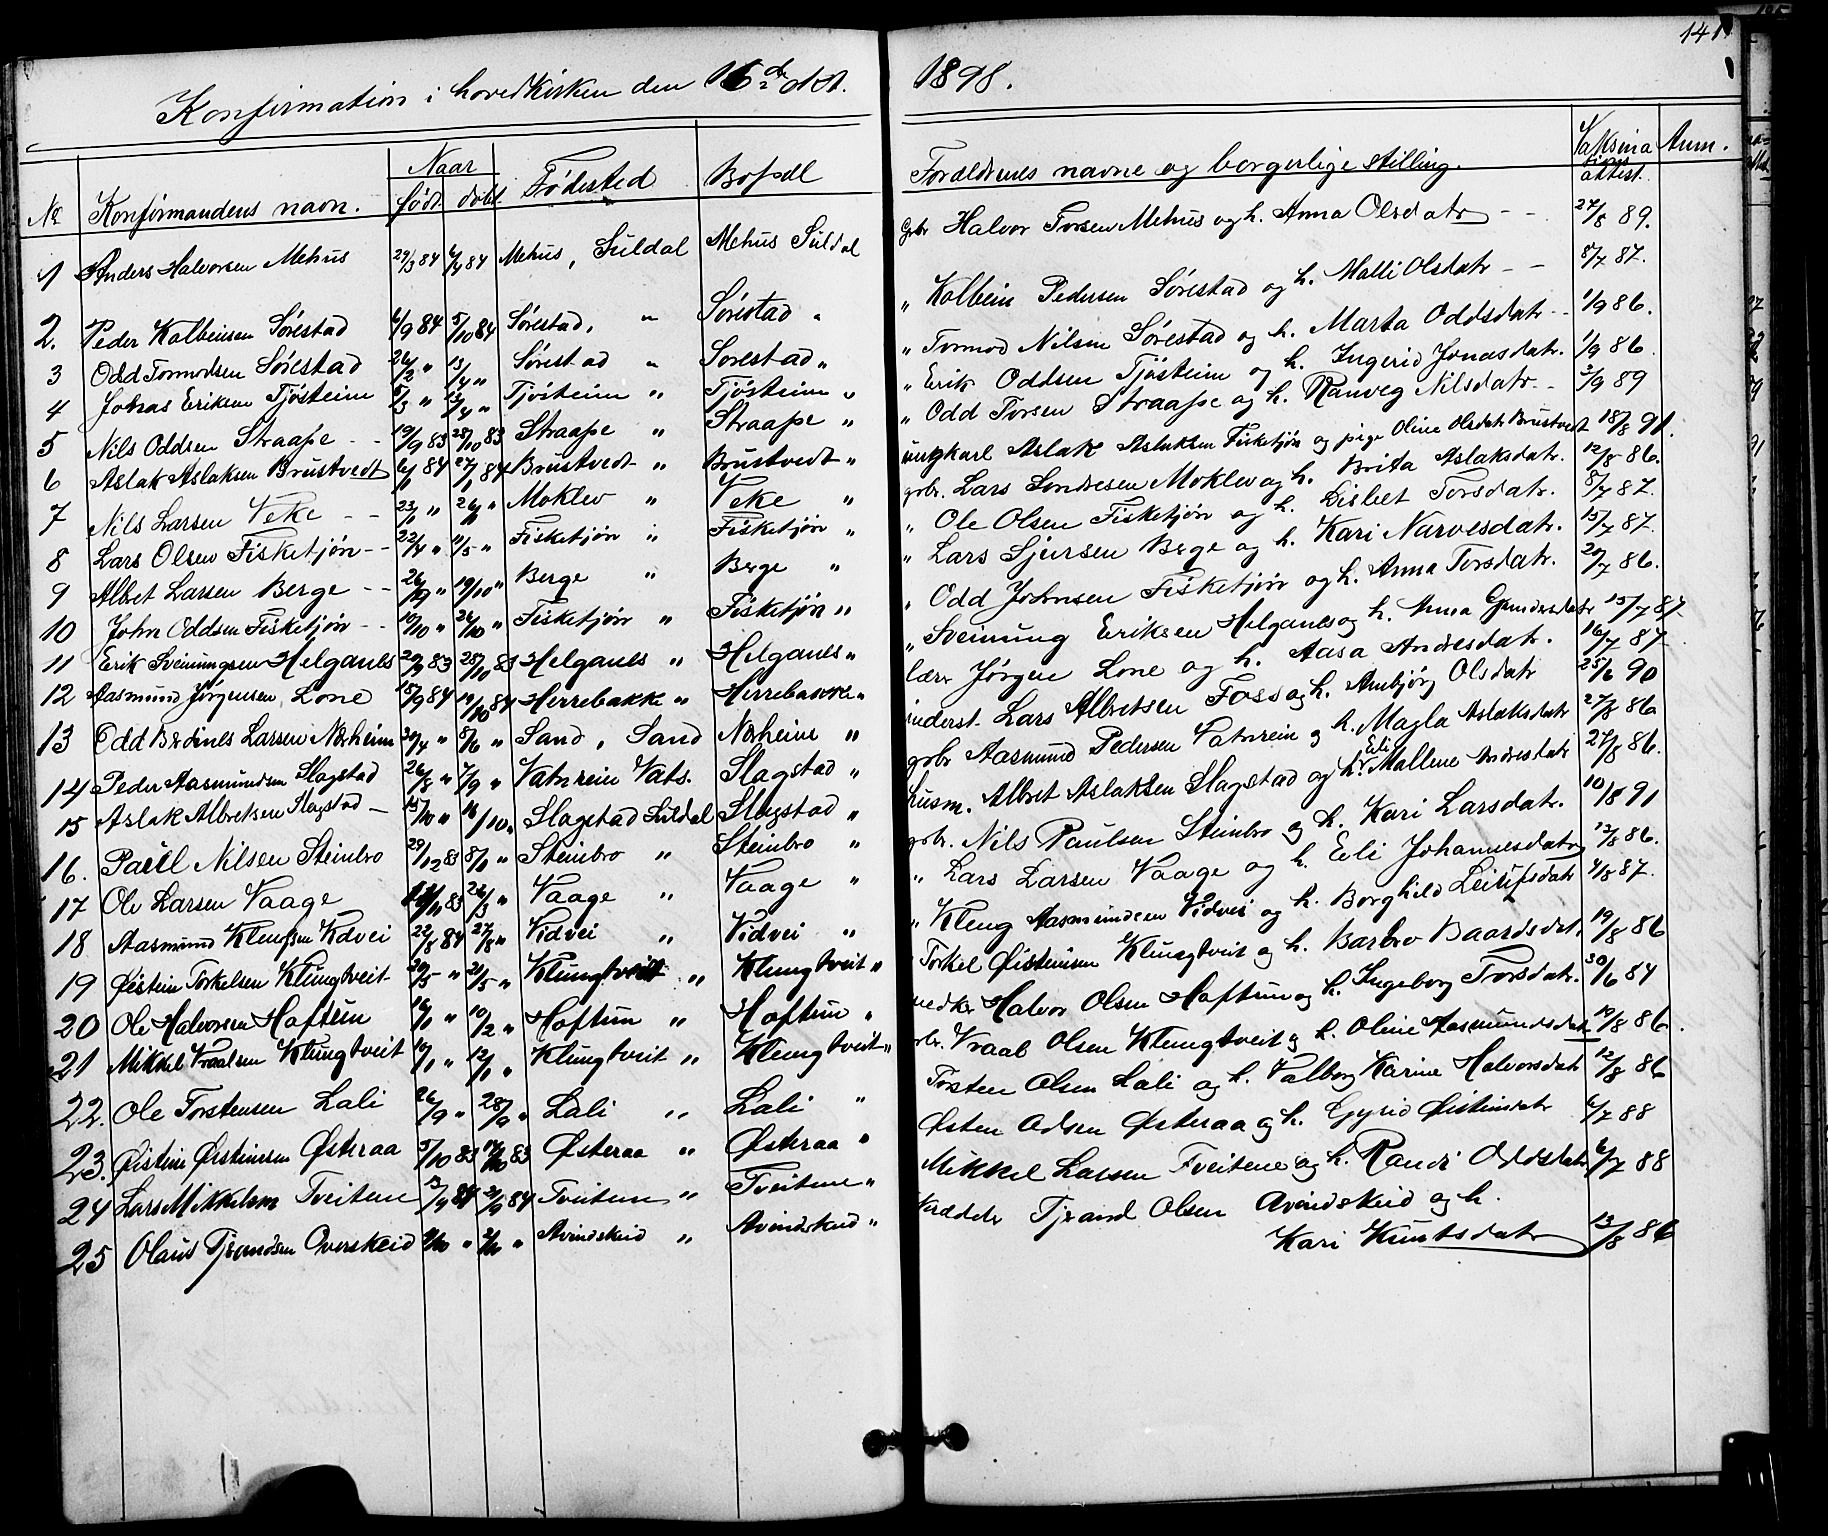 141
Konfirmation i hovedkirken den 16de okt. 1898.
No Konfirmandens navn. Naar født døbt Fødested Bopæl Forældrenes navne og borgerlige stilling. Vaksinationsattest. Anm.
1 Anders Halvorsen Mehus 29/3 84 6/4 84 Mehus, Suldal Mehus Suldal Gbr Halvor Torsen Mehus og h. Anna Olsdatr - - 27/8 89.
2. Peder Kolbeinsen Sørestad 6/9 84 5/10 84 Sørestad, " Sørestad " " Kolbein Pedersen Sørestad og h. Malli Olsdatr - - 8/7 87.
3 Odd Tormodsen Sørestad 26/2 " 13/4 " Sørestad " Sørestad " " Tormod Nilsen Sørestad og h. Marta Oddsdatr - - 1/9 86.
4 Johnas Eriksen Tjøsteim 5/3 " 13/4 " Tjøsteim " Tjøsteim " " Erik Oddsen Tjøsteim og h. Ingerid Jonasdatr. 1/9 86.
5 Nils Oddsen Straape - - 19/9 83 28/10 83 Straape " Straape " " Odd Torsen Straape og h. Ranveg Nilsdatr - 3/9 89
6 Aslak Aslaksen Brustvedt 6/1 84 27/1 84 Brustvedt " Brustvedt " ungkarl Aslak Aslaksen Fisketjøn og pige Oline Olsdatr Brustvedt 18/8 91.
7 Nils Larsen Veke - - 23/1 " Moklev " Veke " gbr. Lars Sondresen Moklev og h. Brita Aslaksdatr. 12/8 86.
8 Lars Olsen Fisketjøn - - 22/4 " 11/5 " Fisketjøn " Fisketjøn " " Ole Olsen Fisketjøn og h. Lisbet Torsdatr. 8/7 87.
9 Albret Larsen Berge - - 26/9 " 19/10 " Berge " Berge " " Lars Sjursen Berge og h. Kari Narvesdatr. 15/7 87.
10 John Oddsen Fisketjøn - - 10/10 " 26/10 " Fisketjøn " Fisketjøn " " Odd Johnsen Fisketjøn og h. Anna Torsdatr. 20/7 86.
11 Erik Sveinungsen Helganes 83 28/10 83 Helganes " Helganes " " Sveinung Eriksen Helganes og h. Anna Gundersdatr 15/7 87
12 Aasmund Jørgensen Lone 15/9 84 19/10 84 Herrebakke " Herrebakke " lærer Jørgen Lone og h. Aasa Andresdatr. 16/7 87
13 Odd Berdines Larsen Nærheim 20/4 " 8/6 " Sand, Sand Nærheim " inderst. Lars Albretsen Foss og h. Anbjørg Olsdatr 25/6 90
14 Peder Aasmundsen Slagstad 26/8 " 7/9 " Vatnrein Vats. Slagstad " gbr Aasmund Pedersen Vatnrein og h. Magla Aslaksdatr 27/8 86
15 Aslak Albretsen Slagstad - 15/10 " /10 " Slagstad Suldal Slagstad " husm. Albret Aslaksen Slagstad og h. Eli Mallene Andresdatr 27/8 86.
16. Paul Nilsen Steinbro 29/12 83 8/1 " Steinbro " Steinbro " gbr. Nils Paulsen Steinbro og h. Kari Larsdatr. 10/8 91
17 Ole Larsen Vaage 83 26/3 " Vaage " Vaage " " Lars Larsen Vaage og h. Eli Johannesdatr 12/8 86.
18 Aasmund Klengsen Vidvei 22/8 84 27/8 " Vidvei " Vidvei " " Kleng Aasmundsen Vidvei og h. Borghild Leisifsdatr 4/8 87.
19 Øistein Torkelsen Klungtveit 20/5 " 21/5 " Klungtveit " Klungtveit " Torkel Øisteinsen Klungtveit og h. Barbro Baardsdat. 19/8 86
20 Ole Halvorsen Hoftun 16/1 " 10/2 " Hoftun " Hoftun " Halvor Olsen Hoftun og h. Ingeborg Torsdatr. 30/6 84
21 Mikkel Vraalsen Klungtveit 10/1 " 12/1 " Klungtveit " Klungtveit " gbr. Vraal Olsen Klungtveit og h. Oline Aasmundsdatr 19/8 86.
22. Ole Torstensen Lali 26/9 " 28/9 " Lali " Lali " Torsten Olsen Lali og h. Valborg Karine Halvorsdatr 12/8 86
23. Øistein Øisteinsen Østeraa 5/10 83 83 Østeraa " Østeraa " Østen Olsen Østeraa og h. Gyrid Øisteinsdatr 6/7 88
24 Lars Mikkelsen Tveitene 13/9 84 21/9 84 Tveitene " Tveitene " Mikkel Larsen Tveitene og h. Randi Oddsdatr 6/7 88
25 Olaus Tjerandsen Overskeid " " Avindskeid " Avindskeid " skrædder Tjerand Olsen Avindskeid og h.
Kari Knutsdatr 13/8 86